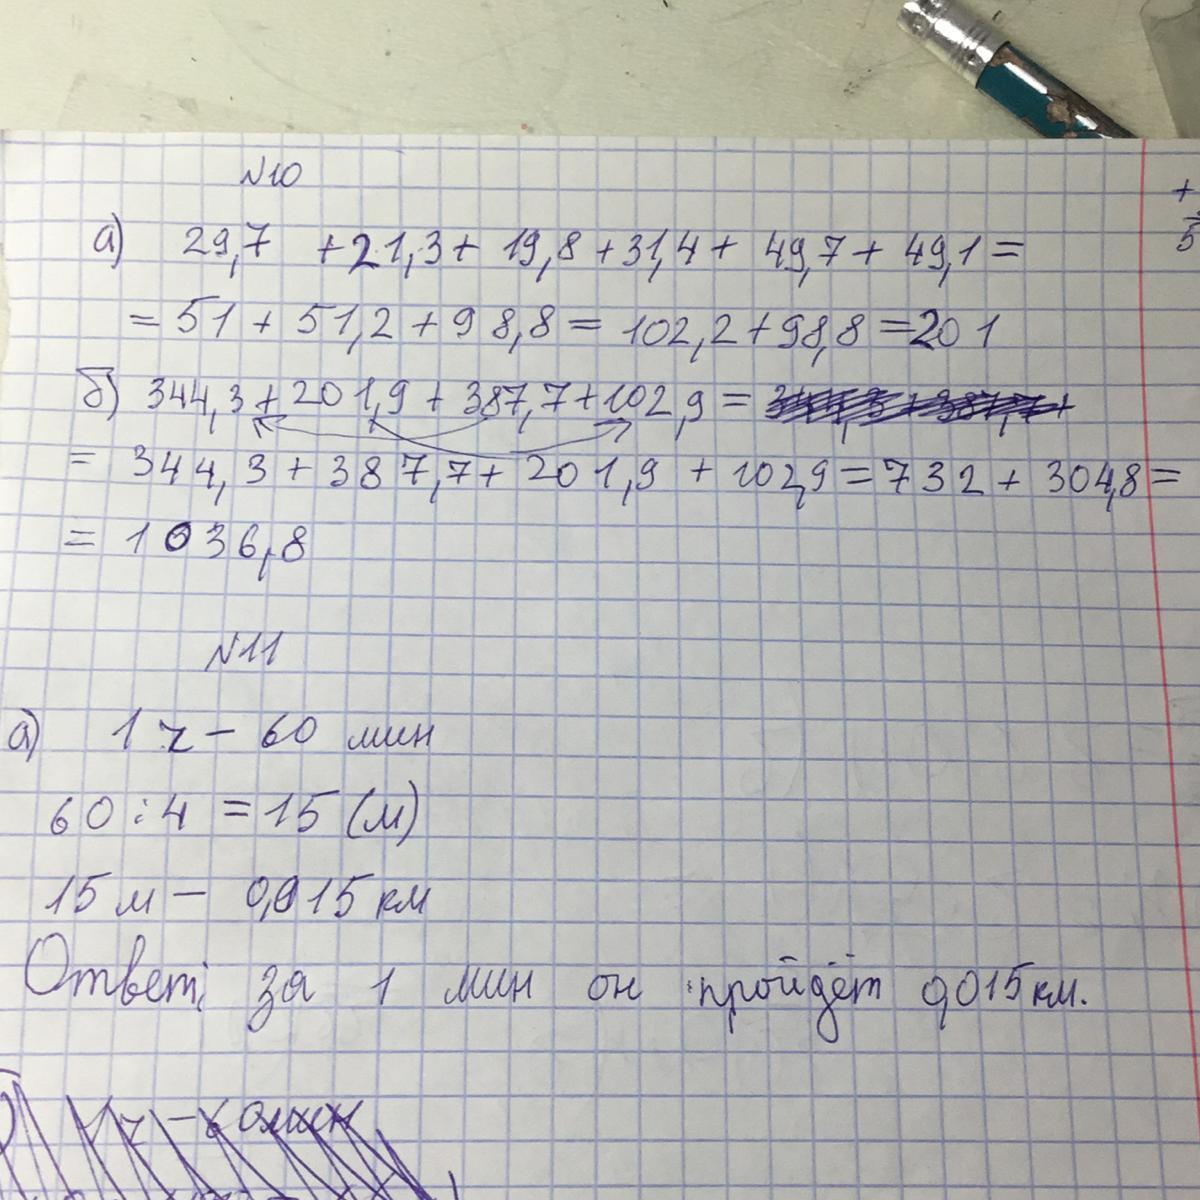 №10
а) 29,7 + 21,3 + 19,8 + 31,4 + 49,7 + 49,1 =
= 51 + 51,2 + 98,8 = 102,2 + 98,8 = 201
б) 344,3 + 201,9 + 387,7 + 102,9 =
= 344,3 + 387,7 + 201,9 + 102,9 = 732 + 304,8 =
= 1036,8
№11
а) 1 ч – 60 мин
60 : 4 = 15 (м)
15 м – 0,015 км
Ответ: за 1 мин он пройдёт 0,015 км.
+
5